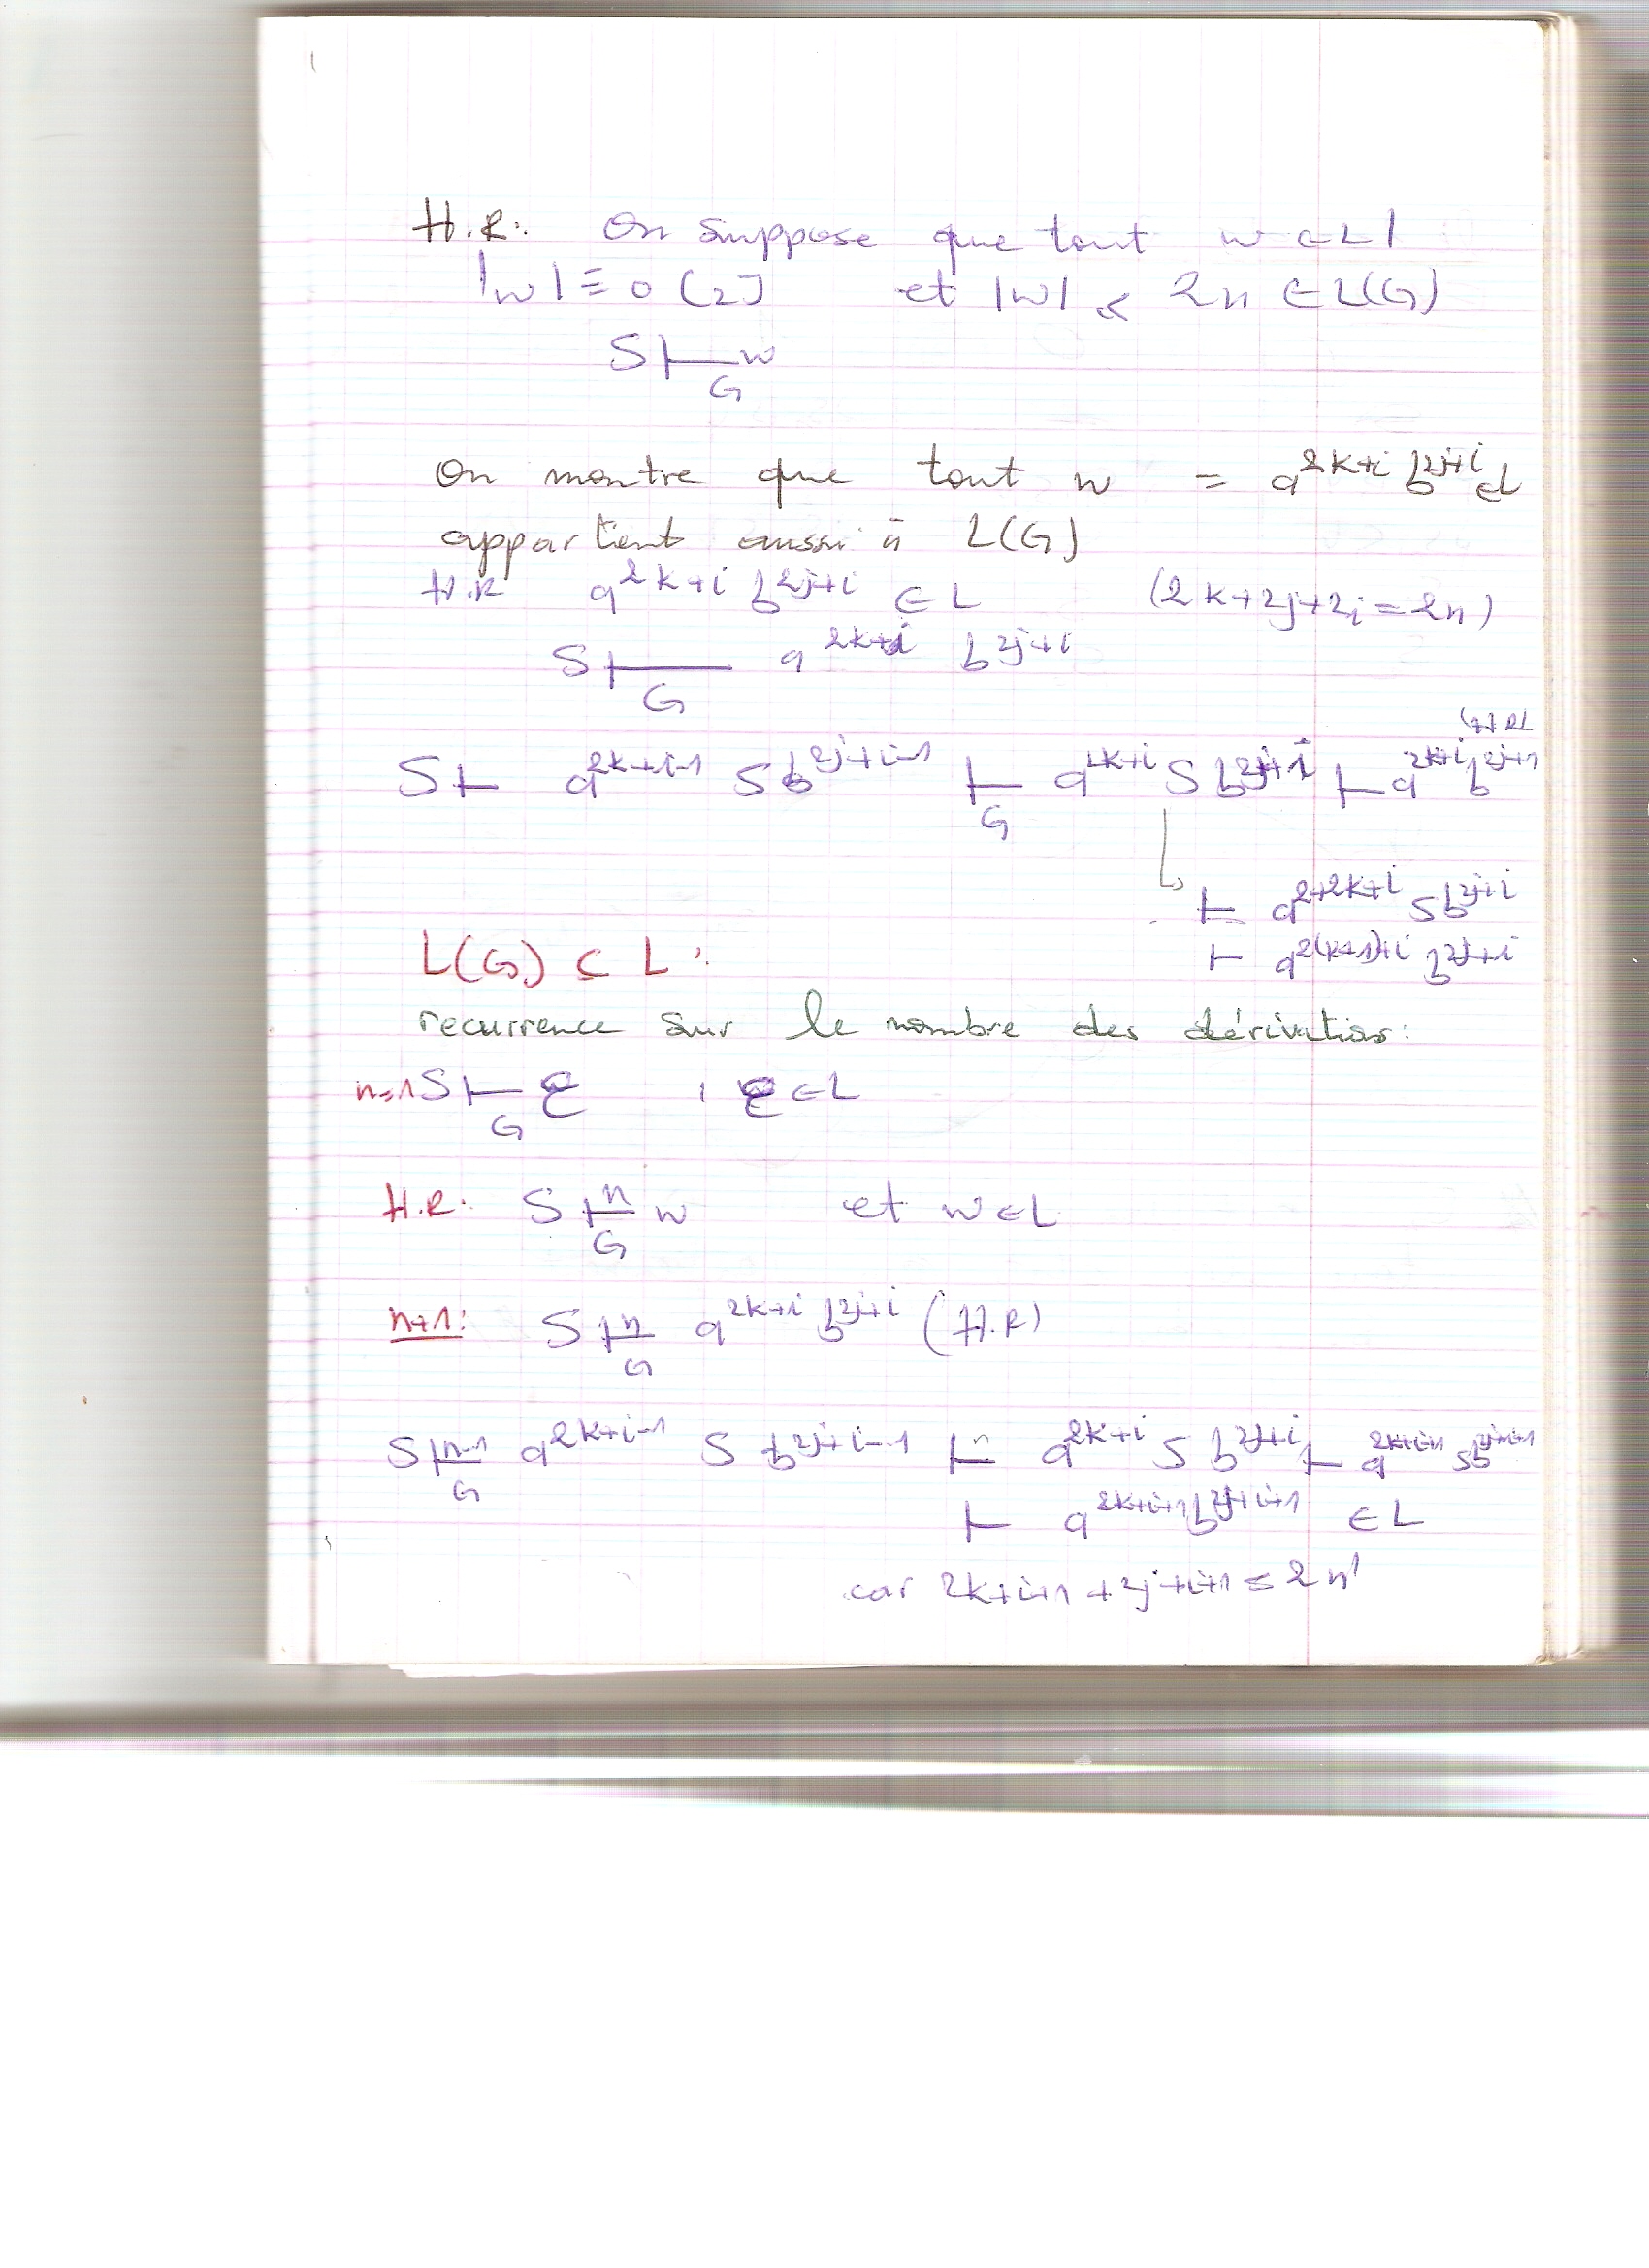 H.R:. On suppose que tout w ∈ L /
|w| ≡ 0 [2] et |w| ≤ 2n ∈ L(G)
S ⊢_G w
On montre que tout w = a^{2k+i} b^{2j+i} ∈ L
appartient aussi à L(G)
H.R a^{2k+i} b^{2j+i} ∈ L (2k+2j+2i=2n)
S ⊢_G a^{2k+i} b^{2j+i}
(H.R)
S ⊢ a^{2k+i-1} S b^{2j+i-1} ⊢_G a^{2k+i} S b^{2j+i} ⊢ a^{2k+i} b^{2j+i}
↳ ⊢ a^{2+2k+i} S b^{2j+i}
⊢ a^{2(k+1)+i} b^{2j+i}
L(G) ⊂ L :
recurrence sur le nombre des dérivatios:
n=1 S ⊢_G ε , ε ∈ L
H.R: S ⊢^n_G w et w ∈ L
n+1: S ⊢^n_G a^{2k+i} b^{2j+i} (H.R)
S ⊢^{n-1}_G a^{2k+i-1} S b^{2j+i-1} ⊢^n a^{2k+i} S b^{2j+i} ⊢ a^{2k+i+1} S b^{2j+i+1}
⊢ a^{2k+i+1} b^{2j+i+1} ∈ L
car 2k+i+1+2j+i+1 = 2n'